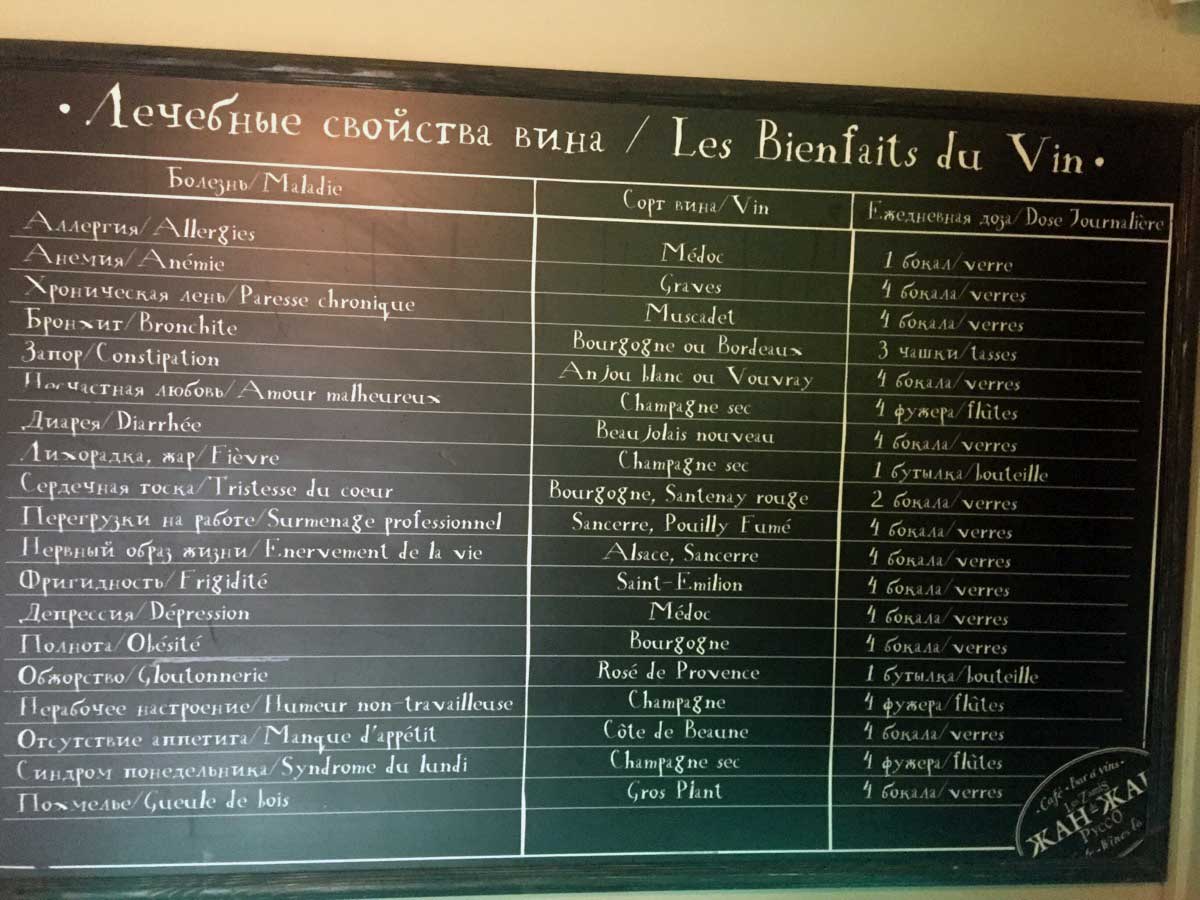 • Лечебные свойства вина / Les Bienfaits du Vin •
Болезнь/Maladie Сорт вина/Vin Ежедневная доза/Dose Journalière
Аллергия/Allergies Médoc 1 бокал/verre
Анемия/Anémie Graves 4 бокала/verres
Хроническая лень/Paresse chronique Muscadet 4 бокала/verres
Бронхит/Bronchite Bourgogne ou Bordeaux 3 чашки/tasses
Запор/Constipation Anjou blanc ou Vouvray 4 бокала/verres
Несчастная любовь/Amour malheureux Champagne sec 4 фужера/flûtes
Диарея/Diarrhée Beaujolais nouveau 4 бокала/verres
Лихорадка, жар/Fièvre Champagne sec 1 бутылка/bouteille
Сердечная тоска/Tristesse du coeur Bourgogne, Santenay rouge 2 бокала/verres
Перегрузки на работе/Surmenage professionnel Sancerre, Pouilly Fumé 4 бокала/verres
Нервный образ жизни/Enervement de la vie Alsace, Sancerre 4 бокала/verres
Фригидность/Frigidité Saint-Emilion 4 бокала/verres
Депрессия/Dépression Médoc 4 бокала/verres
Полнота/Obésité Bourgogne 4 бокала/verres
Обжорство/Gloutonnerie Rosé de Provence 1 бутылка/bouteille
Нерабочее настроение/Humeur non-travailleuse Champagne 4 фужера/flûtes
Отсутствие аппетита/Manque d'appétit Côte de Beaune 4 бокала/verres
Синдром понедельника/Syndrome du lundi Champagne sec 4 фужера/flûtes
Похмелье/Gueule de bois Gros Plant 4 бокала/verres
Café - Bar à vins -
ЖАН ЖАК
Руссо